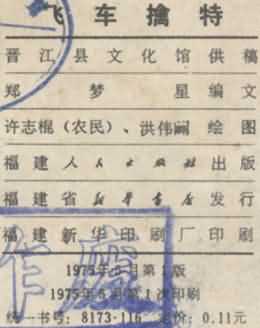 飞车擒特
晋江县文化馆供稿
郑梦星编文
许志棍（农民）、洪伟嗣绘图
福建人民出版社出版
福建省新华书店发行
福建新华印刷厂印刷
1975年5月第1版
1975年5月第1次印刷
统一书号：8173·116 定价：0.11元
作废